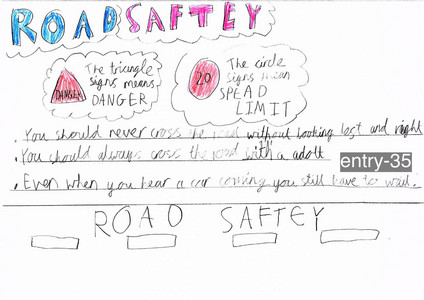 ROAD SAFTEY
The triangle
signs means
DANGER
DANGER
The circle
signs mean
SPEAD
LIMIT
20
. You should never cross the road without looking left and right
. You should always cross the road with a adolt
entry-35
. Even when you hear a car coming you still have to wait.
ROAD SAFTEY